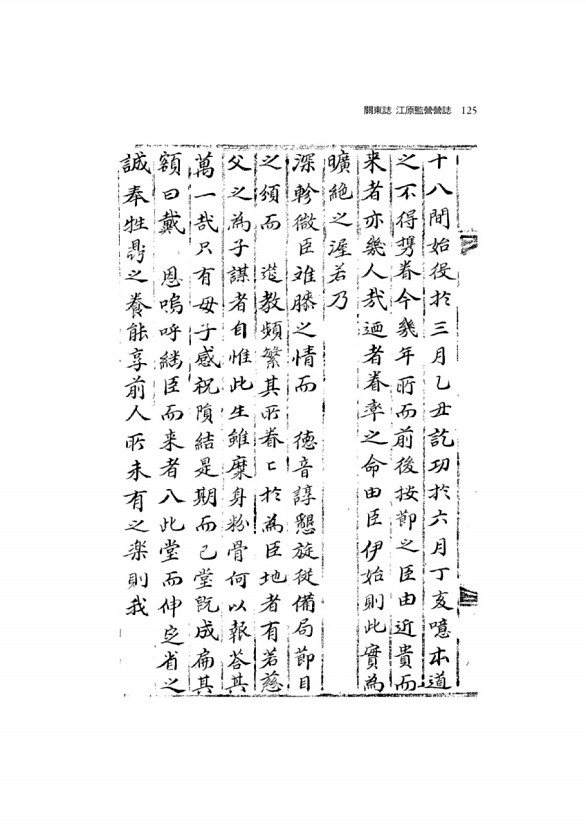 關東誌 江原監營營誌 125
十八間始役於三月乙丑訖功於六月丁亥噫本道
之不得挈眷今幾年所而前後按節之臣由近貴而
来者亦幾人哉迺者眷率之命由臣伊始則此實為
曠絶之渥若乃
深軫微臣难賸之情而 德音諄懇旋從備局節目
之頒而 筵教頻繁其所眷〻於為臣地者有若慈
父之為子謀者自惟此生雖糜身粉骨何以報答其
萬一哉只有母子感祝隕結是期而已堂旣成扁其
額曰戴 恩嗚呼繼臣而来者入此堂而伸定省之
誠奉牲鼎之養能享前人所未有之楽則我